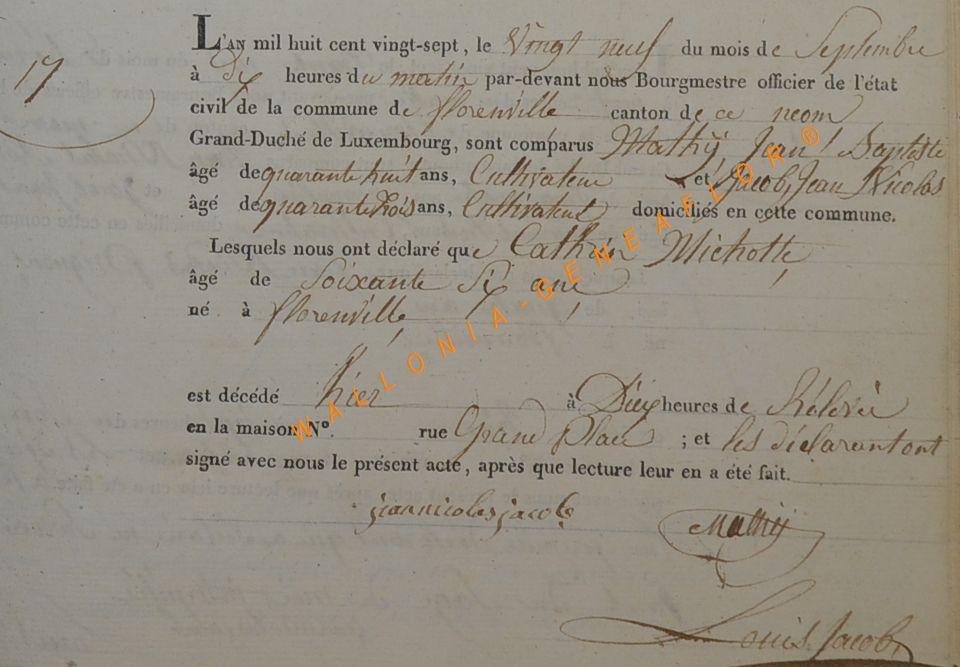 17
L'AN mil huit cent vingt-sept, le Vingt neuf du mois de Septembre
à Dix heures du matin par-devant nous Bourgmestre officier de l'état
civil de la commune de florenville canton de ce neom
Grand-Duché de Luxembourg, sont comparus Mathÿ Jean Baptiste
âgé de quarante huit ans, Cultivateur et Jacob, Jean Nicolas
âgé de quarante trois ans, Cultivateur domiciliés en cette commune.
Lesquels nous ont déclaré que Cathrin Michotte
âgé de Soixante Six ans
né à florenville
est décédé hier à Dix heures de
en la maison N°. rue Grand place ; et les déclarant ont
signé avec nous le présent acte, après que lecture leur en a été fait.
jeannicolas jacob Mathÿ
Louis Jacob
WALLONIA-GENEAFLOR®